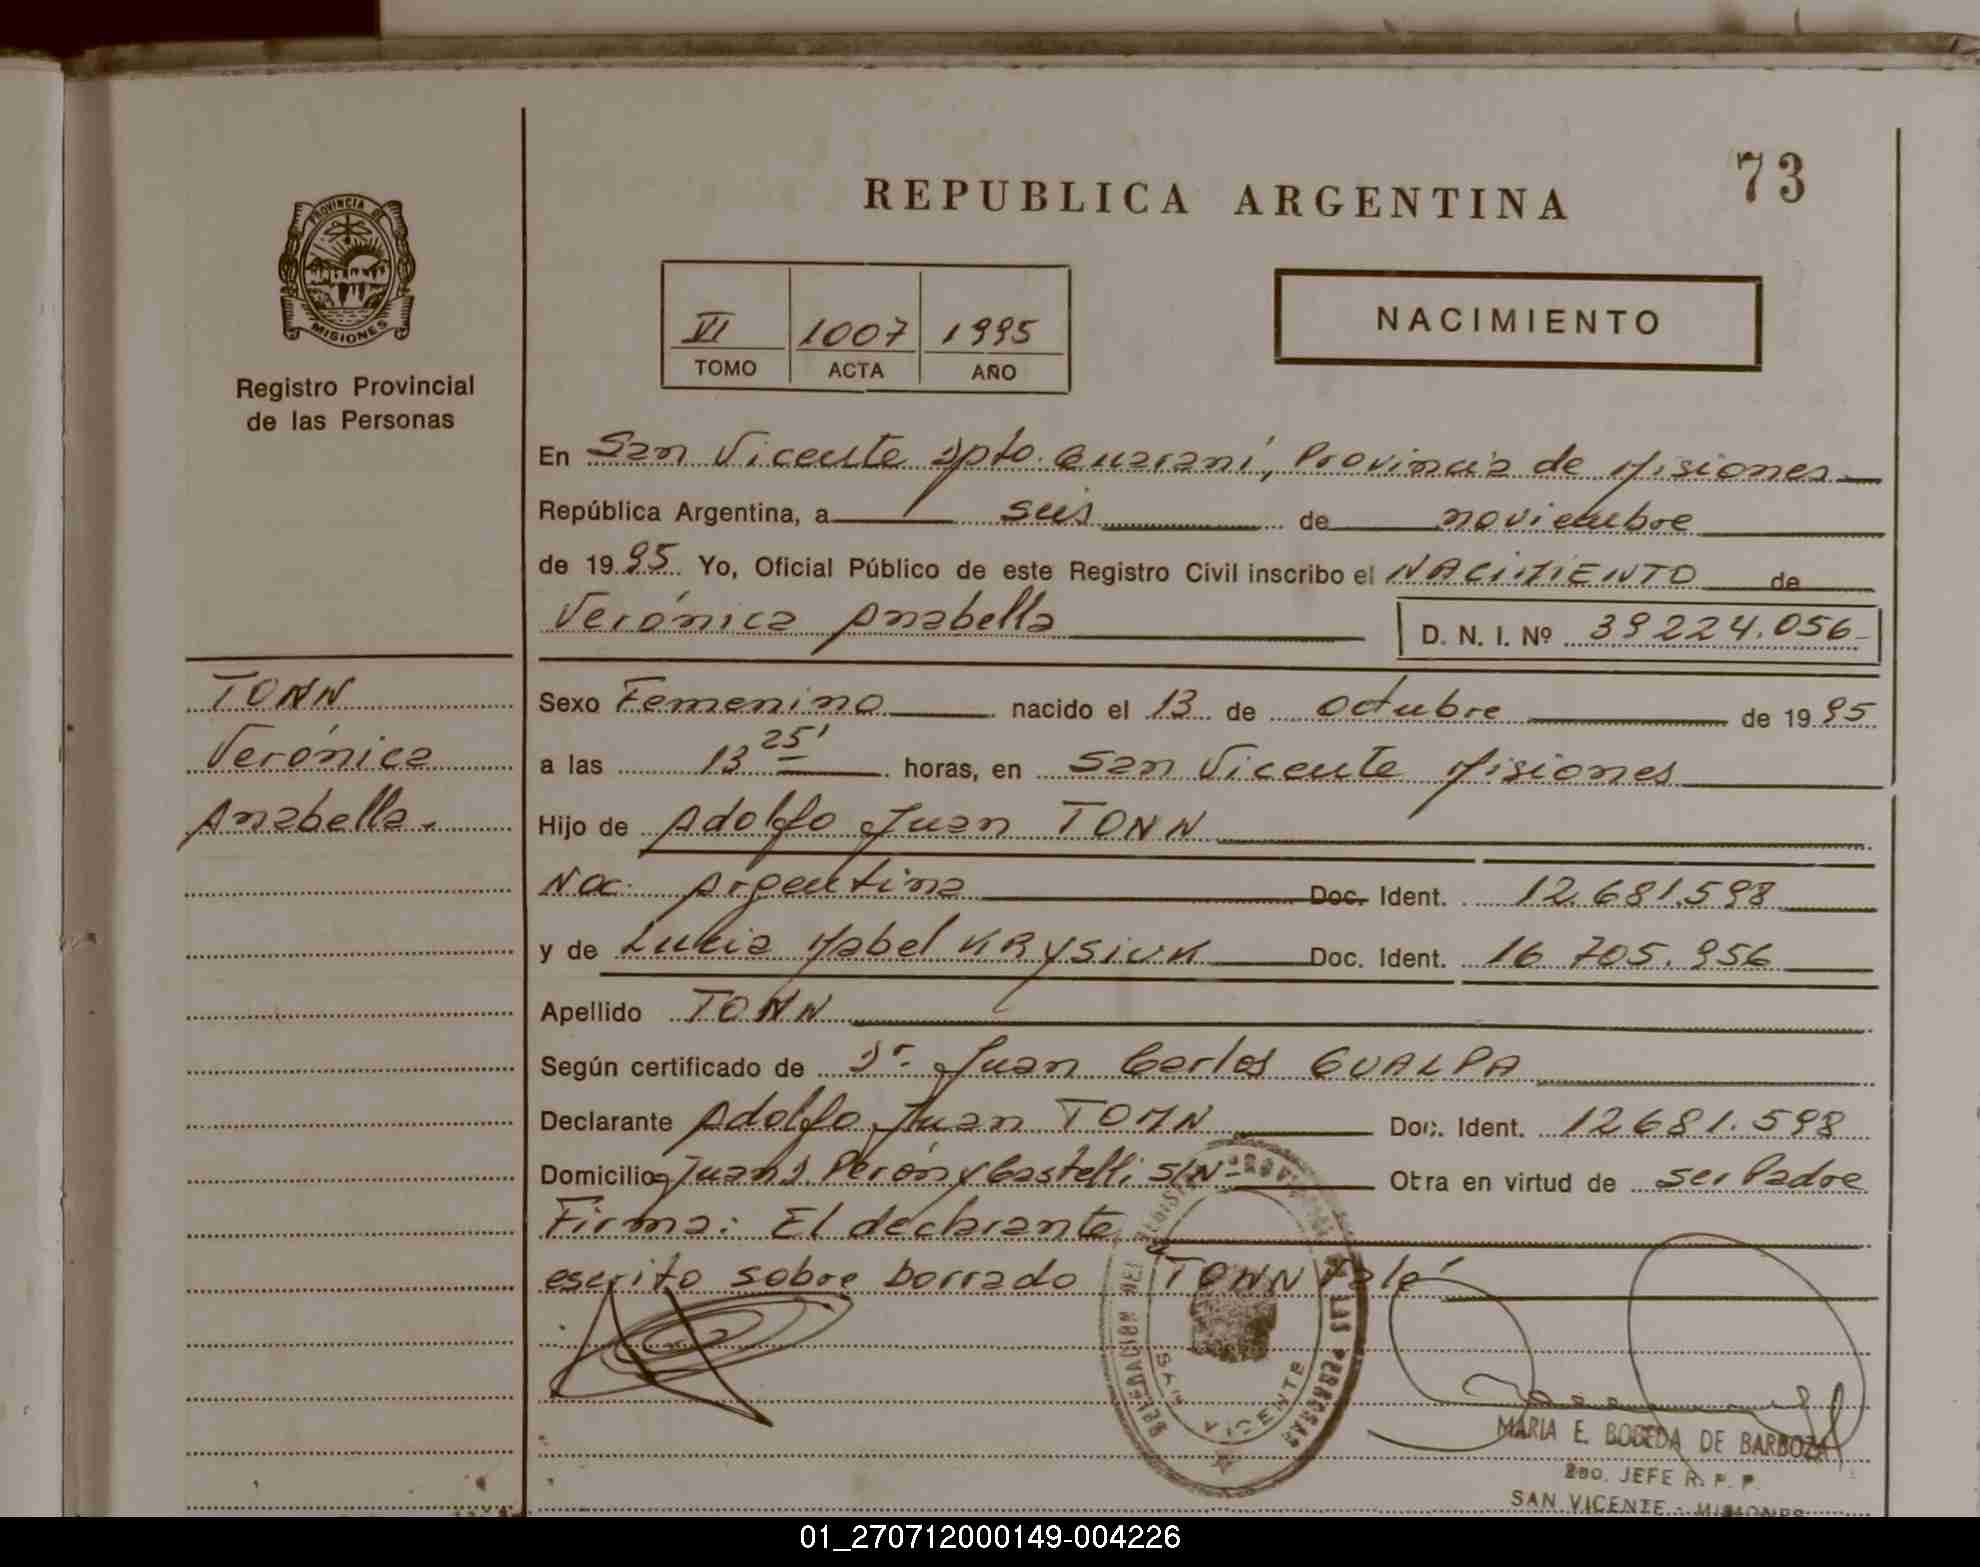 REPUBLICA ARGENTINA
73
PROVINCIA DE
MISIONES
Registro Provincial
de las Personas
VI 1007 1995
TOMO ACTA AÑO
NACIMIENTO
En San Vicente Dpto. Guaraní, Provincia de Misiones
República Argentina, a seis de noviembre
de 1995 Yo, Oficial Público de este Registro Civil inscribo el NACIMIENTO de
Verónica Anabella
D. N. I. Nº 39224.056
TONN
Verónica
Anabella.
Sexo Femenino nacido el 13 de octubre de 1995
a las 13 25' horas, en San Vicente Misiones
Hijo de Adolfo Juan TONN
Nac. Argentina Doc. Ident. 12.681.598
y de Lucia Mabel KRYSIUK Doc. Ident. 16 705.956
Apellido TONN
Según certificado de Dr. Juan Carlos GUALPA
Declarante Adolfo Juan TONN Doc. Ident. 12681.598
Domicilio Juan D. Perón y Castelli S/N Otra en virtud de ser Padre
Firma: El declarante
escrito sobre borrado TONN Vale
DELEGACION DEL REGISTRO PROVINCIAL DE LAS PERSONAS
SAN VICENTE
MARIA E. BOBEDA DE BARBOZA
2do. JEFE R. P. P.
SAN VICENTE - MISIONES
01_270712000149-004226